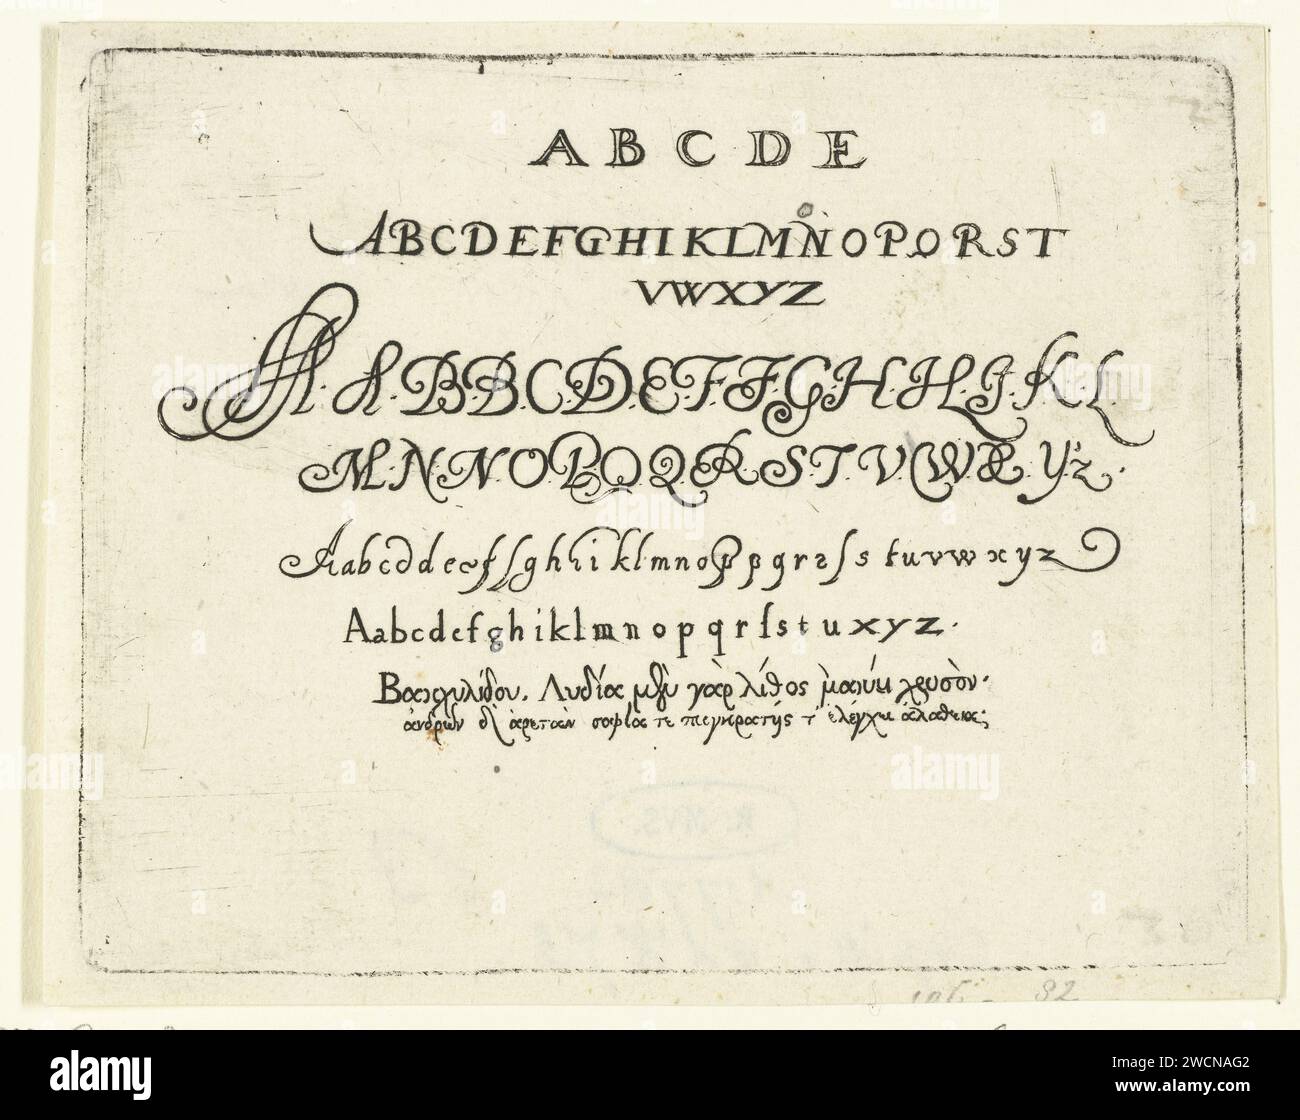 A B C D E
ABCDEFGHIKLMNOPQRST
VWXYZ
A.A.B.B.C.D.E.F.F.G.H.H.I.K.L
M.N.N.O.P.Q.Q.R.S.T.V.W.X.Y.z.
Aabcddeefſſghhiiklmnopppqrsſs tuvwxyz
Aabcdefghiklmnopqrſstuxyz.
Βακχυλίδου. Λυδία μὲν γὰρ λίθος μανύει χρυσὸν·
ἀνδρῶν δ' ἀρετὰν σοφία τε παγκρατής τ' ἐλέγχει ἀλάθεια;
R. MVS.
82
alamy
Image ID: 2WCNAG2
www.alamy.com